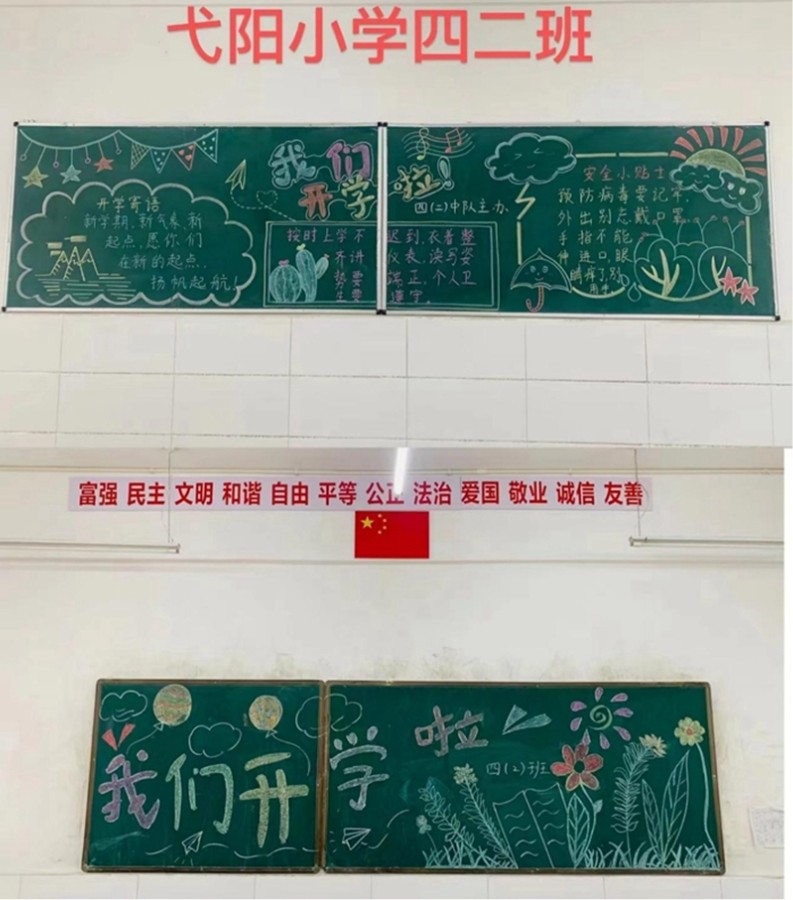 弋阳小学四二班
我们开学啦!
四(2)中队主办
开学寄语
新学期,新气象,新
起点,愿你们
在新的起点,
扬帆起航!
按时上学不迟到,衣着整
齐讲仪表,读写姿
势要端正,个人卫
生要遵守。
安全小贴士
预防病毒要记牢,
外出别忘戴口罩,
手指不能
伸进口眼
富强 民主 文明 和谐 自由 平等 公正 法治 爱国 敬业 诚信 友善
我们开学啦
四(2)班